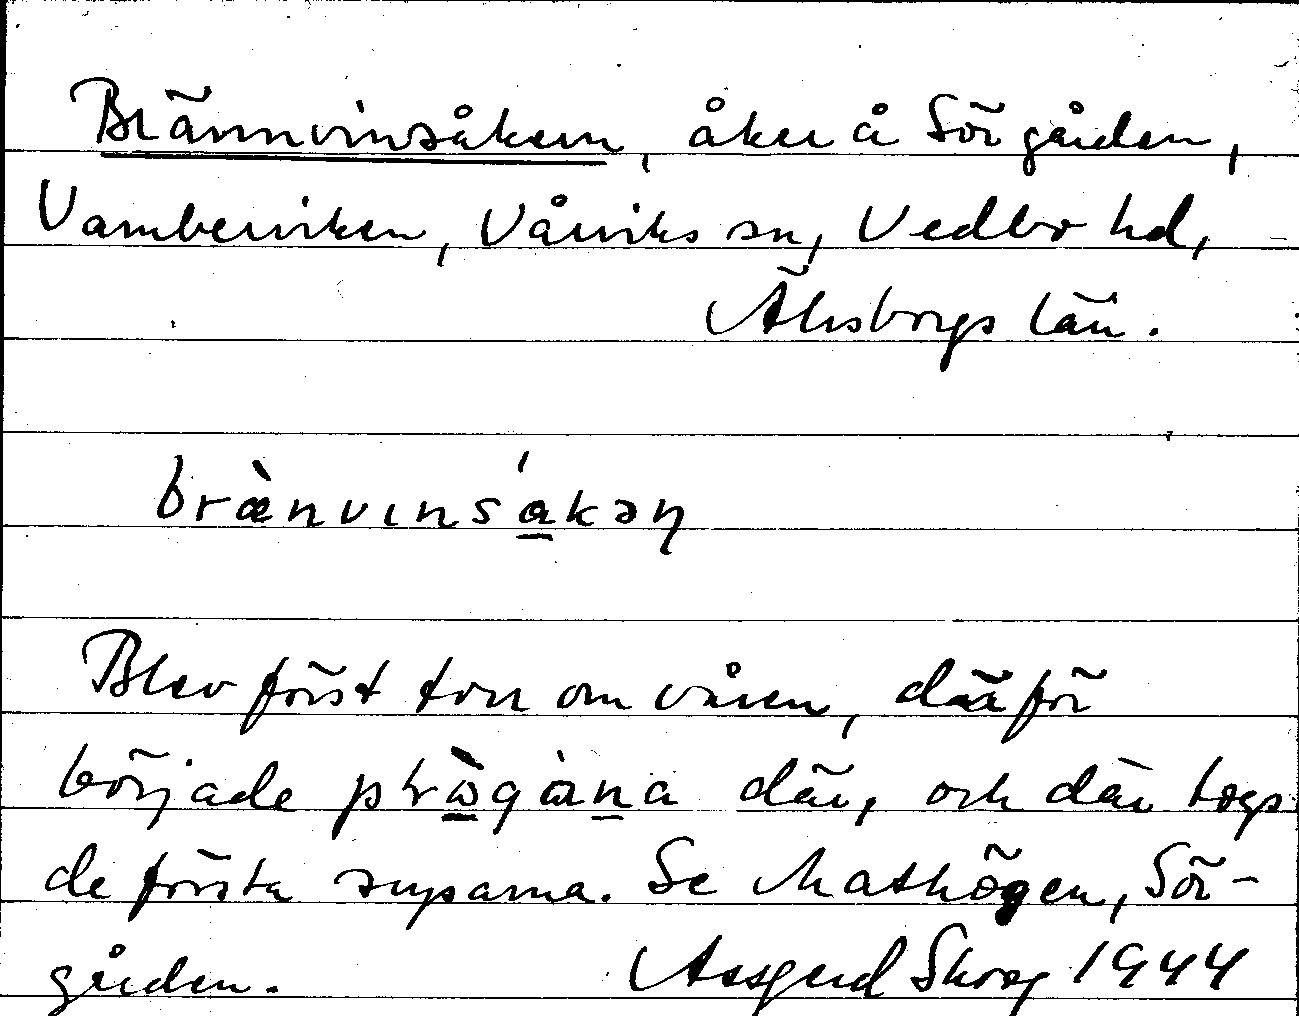 Brännvinsåkern, åker å Sörgården,
Vamberviken, Vårviks sn, Vedbo hd,
Älvsborgs län.
bræ̀nvɩns´a̲kəṇ
Blev först torr om våren, därför
började där, och där togs
de första suparna. Se Mathögen, Sör-
gården. Assgerd Skog 1944